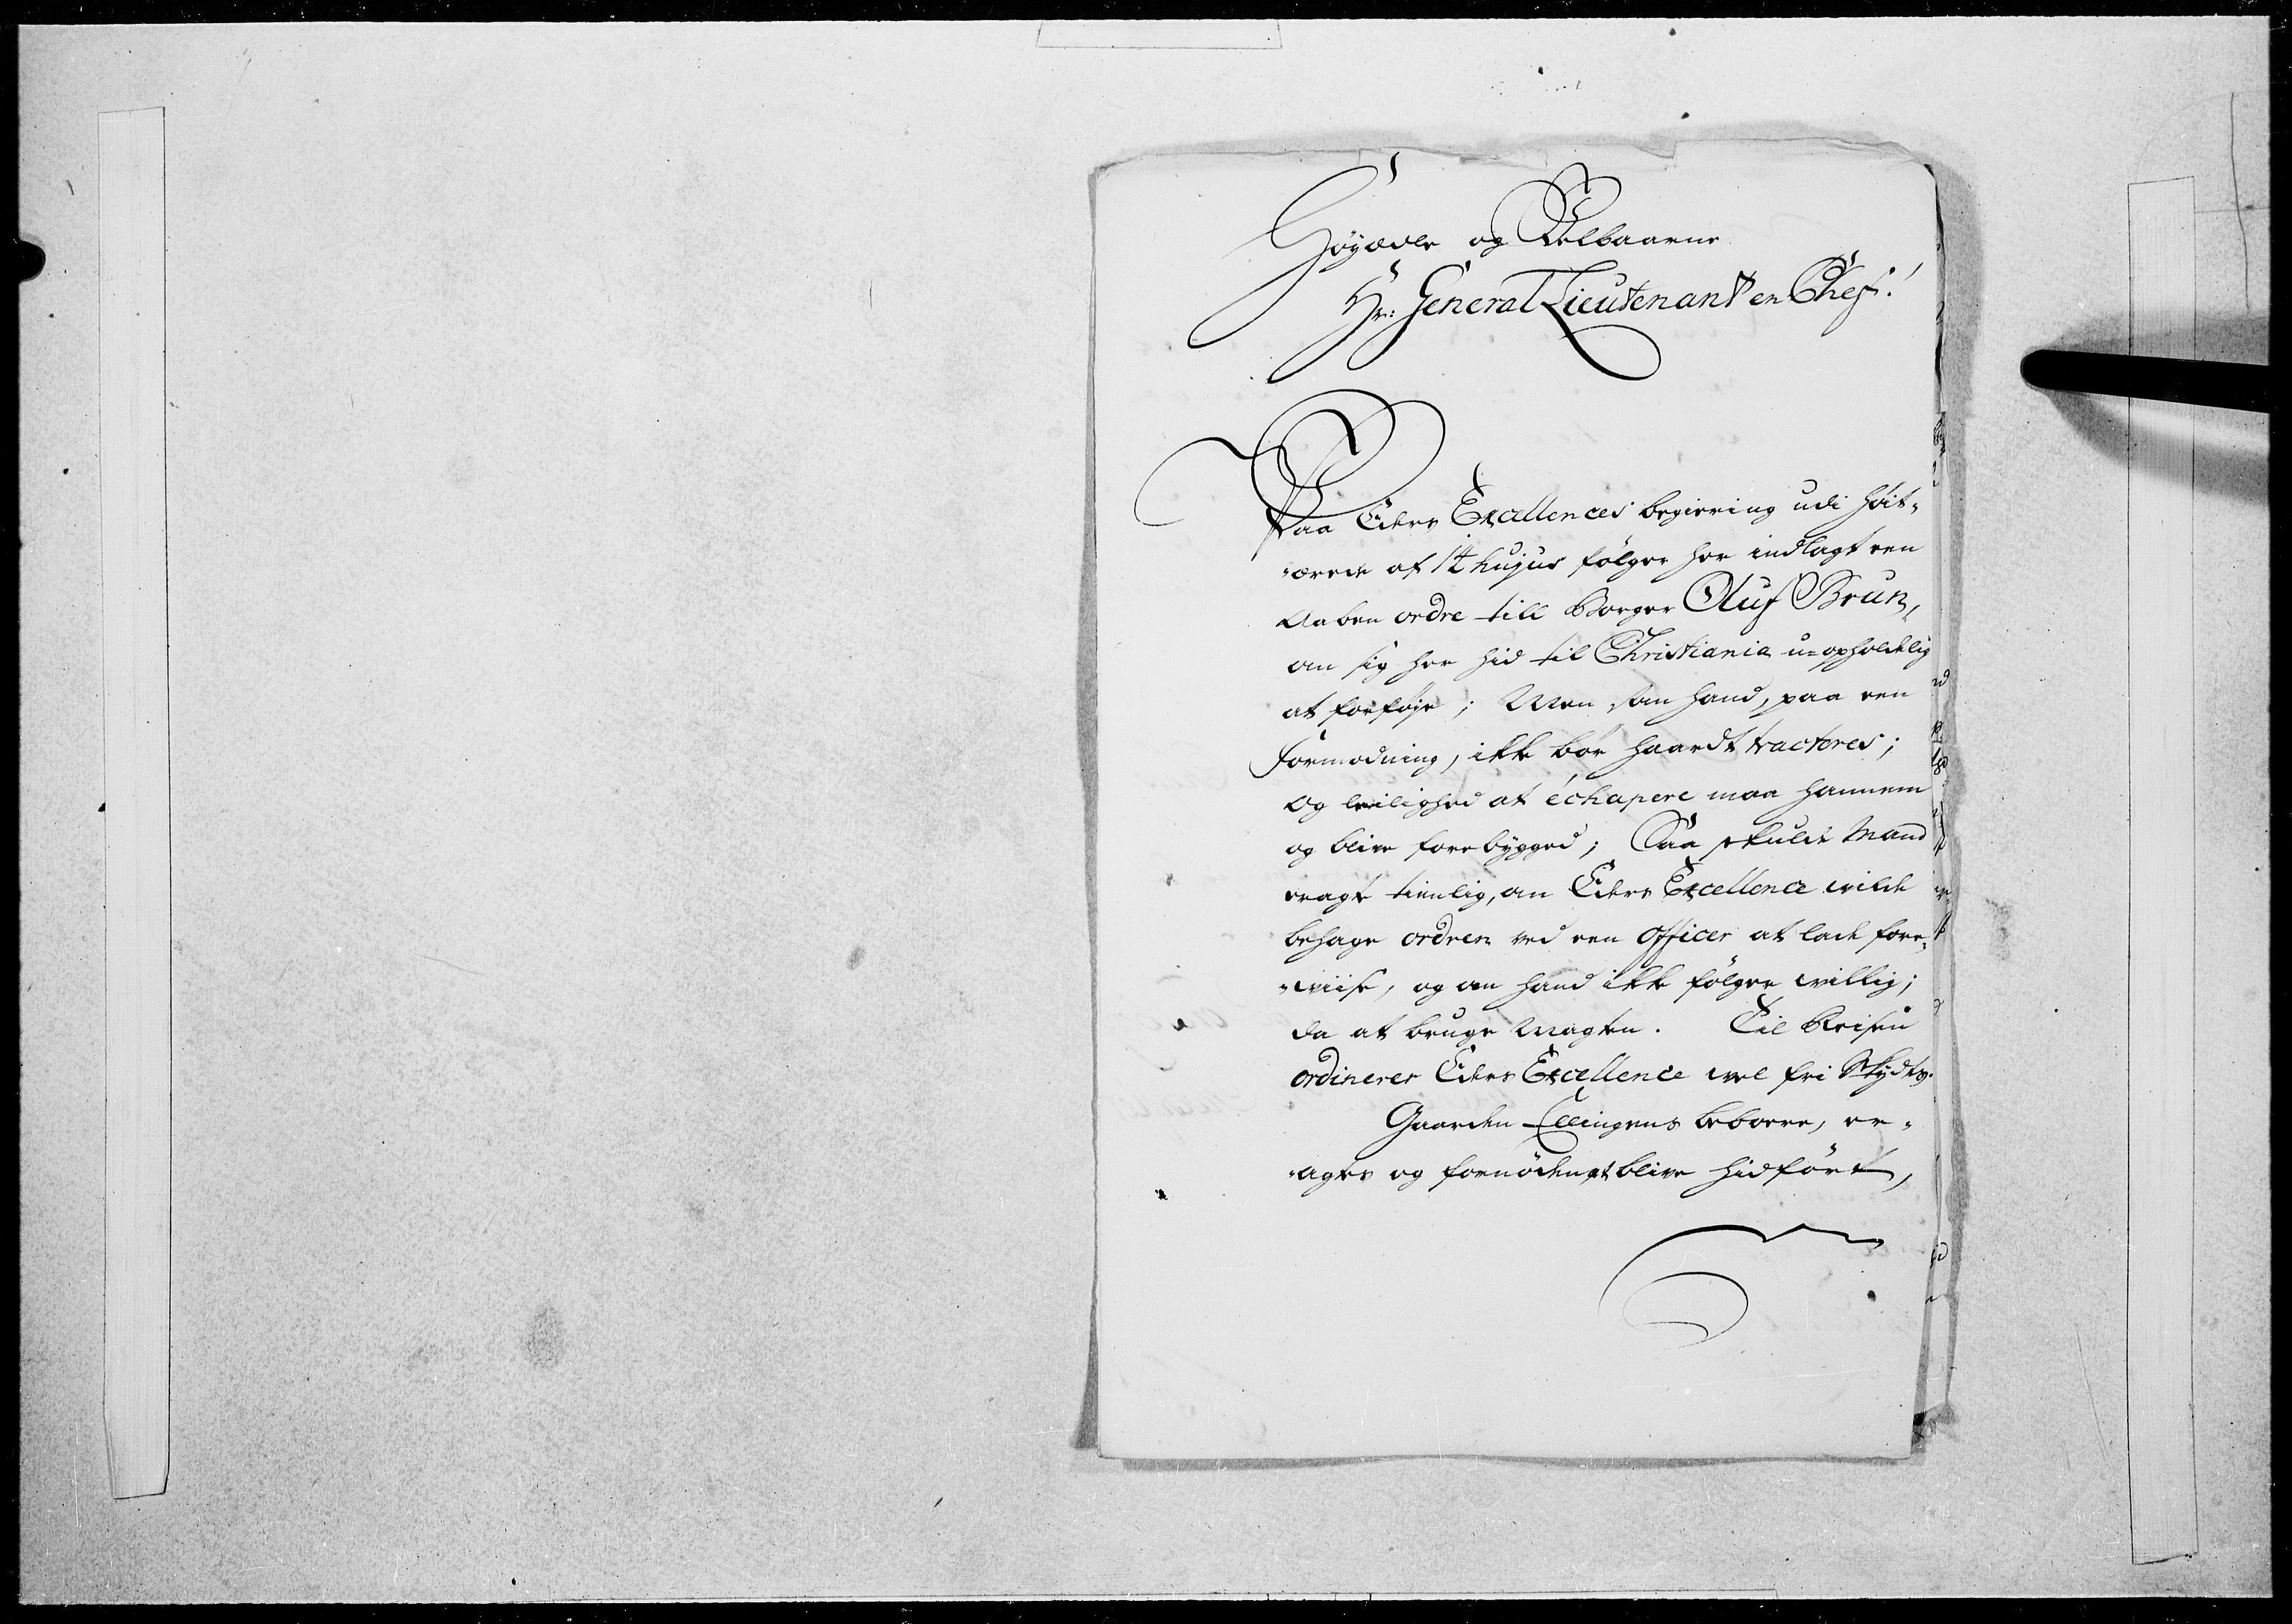 Höyædle og Velbaarne
Hr: General Lieutenant en Chef!
Paa Eders Excellences begiering udi höit-
-ærede af 14 hujus fölger her indlagt een
Aaben ordre till Borger Oluf Brun,
om sig her hid til Christiania u=opholdelig
at forföje; Men som hand, paa een
formodning, ikke bör haardt tracteres;
Og leilighed at échapere maa hannem
og blive forebygged; Saa skulde Mand
eragte tienlig, om Eders Excellence vilde
behage ordren ved een Officer at lade fore-
-viise, og om hand ikke fölger villig;
da at bruge Magten. Til Reisen
ordinerer Eders Excellence vel fri Skyds.
Gaarden Ellingens beboere, er-
-agtes og fornöden at blive hidfört,